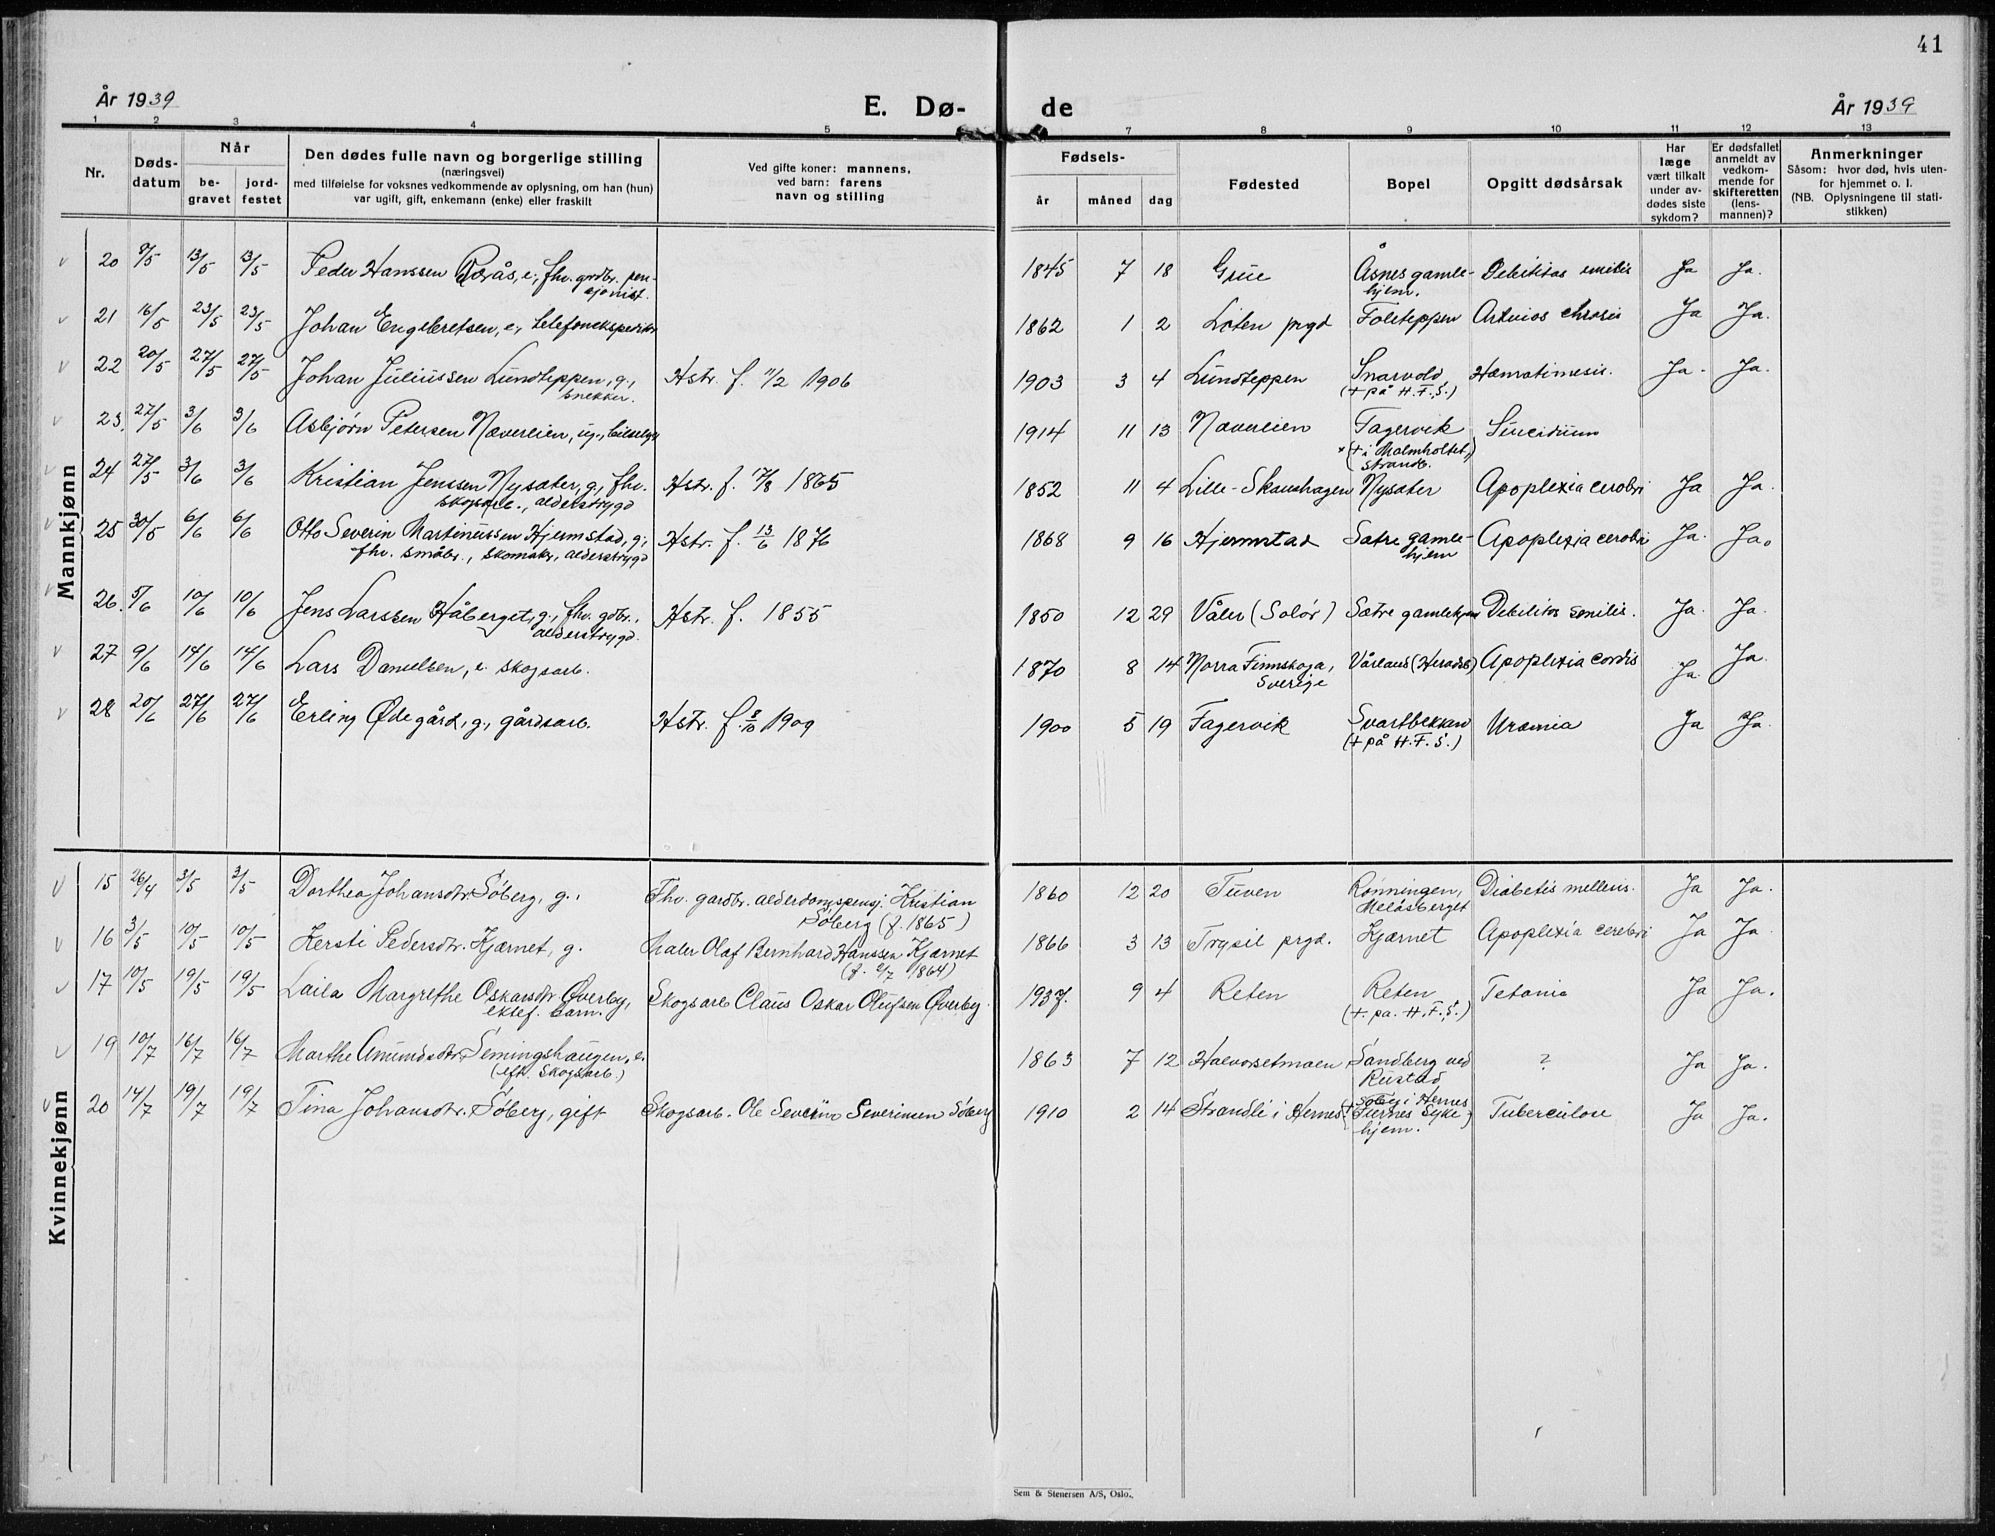 41
År 1939 E. Dø- de År 1939
1 2 3 4 5 7 8 9 10 11 12 13
Nr.
Døds-
datum
Når
be-
gravet
jord-
festet
Den dødes fulle navn og borgerlige stilling
(næringsvei)
med tilføielse for voksnes vedkommende av oplysning, om han (hun)
var ugift, gift, enkemann (enke) eller fraskilt
Ved gifte koner: mannens,
ved barn: farens
navn og stilling
Fødsels-
år måned dag
Fødested
Bopel
Opgitt dødsårsak
Har
læge
vært tilkalt
under av-
dødes siste
sykdom?
Er dødsfallet
anmeldt av
vedkom-
mende for
skifteretten
(lens-
mannen)?
Anmerkninger
Såsom: hvor død, hvis uten-
for hjemmet o. l.
(NB. Oplysningene til stati-
stikken)
Mannkjønn
20 8/5 13/5 13/5 Peder Hanssen Rørås, e., fhv. grdbr. pen- 1845 7 18 Grue Åsnes gamle- Debilitas senilis Ja Ja.
sjonist. hjem.
21 16/5 23/5 23/5 Johan Engebretsen, e., telefonekspeditør 1862 1 2 Løten prgd Foleteppen Ja Ja.
22 20/5 27/5 27/5 Johan Juliussen Lundteppen, g., Hstr. f. 11/2 1906 1903 3 4 Lundteppen Snarvold Hæmatimesis. Ja. Ja.
snekker. (+ på H.F.S.)
23. 27/5 3/6 3/6 Asbjørn Petersen Næverlien, ug., 1914 11 13 Næverlien Fagervik Suicidium
(+ i Malmholtet,
strandb.
24 27/5 3/6 3/6 Kristian Jenssen Nysæter, g., fhv. Hstr. f. 17/8 1865 1852 11 4 Lille-Skaushagen Nysæter Apoplexia cerebri Ja Ja.
skogsarb., alderstrygd
25 30/5 6/6 6/6 Otto Severin Martinussen Hjermstad, g., Hstr. f. 13/6 1876 1868 9 16 Hjermstad Sætre gamle- Apoplexia cerebri Ja. Ja.
fhv. småbr., skomaker, alderstrygd hjem
26. 5/6 10/6 10/6 Jens Larssen Håberget, g., fhv. gdbr., Hstr. f. 1855 1850 12 29 Våler (Solør) Sætre gamlehjem Debilitas senilis. Ja. Ja.
alderstrygd.
27 9/6 14/6 14/6 Lars Danielsen, e. skogsarb. 1870 8 14 Norra Finnskoga, Vårlaus (Heradsb) Apoplexia cordis Ja. Ja.
Sverige
28 20/6 27/6 27/6 Erling Ødegård, g., gårdsarb. Hstr. f. 8/10 1909 1900 5 19 Fagervik Svartbekken Uræmia Ja Ja.
(+ på H.F.S.)
Kvinnekjønn
15 26/4 3/5 3/5 Dorthea Johansdtr. Søberg, g., Fhv. gardbr. alderdomspensj. Kristian 1860 12 20 Tuven Rønningen, Diabetis mellius. Ja Ja.
Søberg (f. 1865) Melåsberget
16 3/5 10/5 10/5 Kersti Pedersdtr. Kjærnet, g. Maler Olaf Bernhard Hanssen Kjærnet 1866 3 13 Trysil prgd. Kjærnet Apoplexia cerebri Ja Ja.
(f. 2/7 1864)
17 10/5 19/5 19/5 Laila Margrethe Oskarsdtr Øverby, Skogsarb Claus Oskar Olufsen Øverby. 1937. 9 4 Reten Reten Tetania Ja Ja.
ektef. barn. (+. på. H.F.S.)
19 10/7 16/7 16/7 Marthe Amundsdtr. Semingshaugen, e. 1863 7 12 Halvorsetmoen Sandberg ved ? Ja Ja.
(eft. Skogsarb) Rustad
20 14/7 19/7 19/7 Tina Johansdtr. Søberg, gift Skogsarb. Ole Severin Severinsen Søberg 1910 2 14 Strandli i Hernes Søberg i Hernes Tuberculose Ja Ja.
(+ Furnes Syke-)
hjem.
Sem & Stenersen A/S, Oslo.